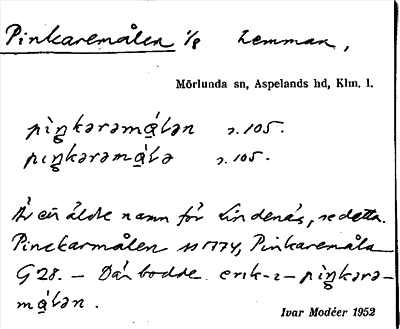 Pinkaremålen 1/8 hemman,
Mörlunda sn, Aspelands hd, Klm. l.
pìŋkərəmá̱lən s. 105.
pɩŋkərəmá̱lə s. 105.
Är ett äldre namn för Lindenäs, se detta.
Pinckarmålen 1774, Pinkaremåla
G 28. – Där bodde erik-ɩ-pìŋkərə-
má̱lən.
Ivar Modéer 1952